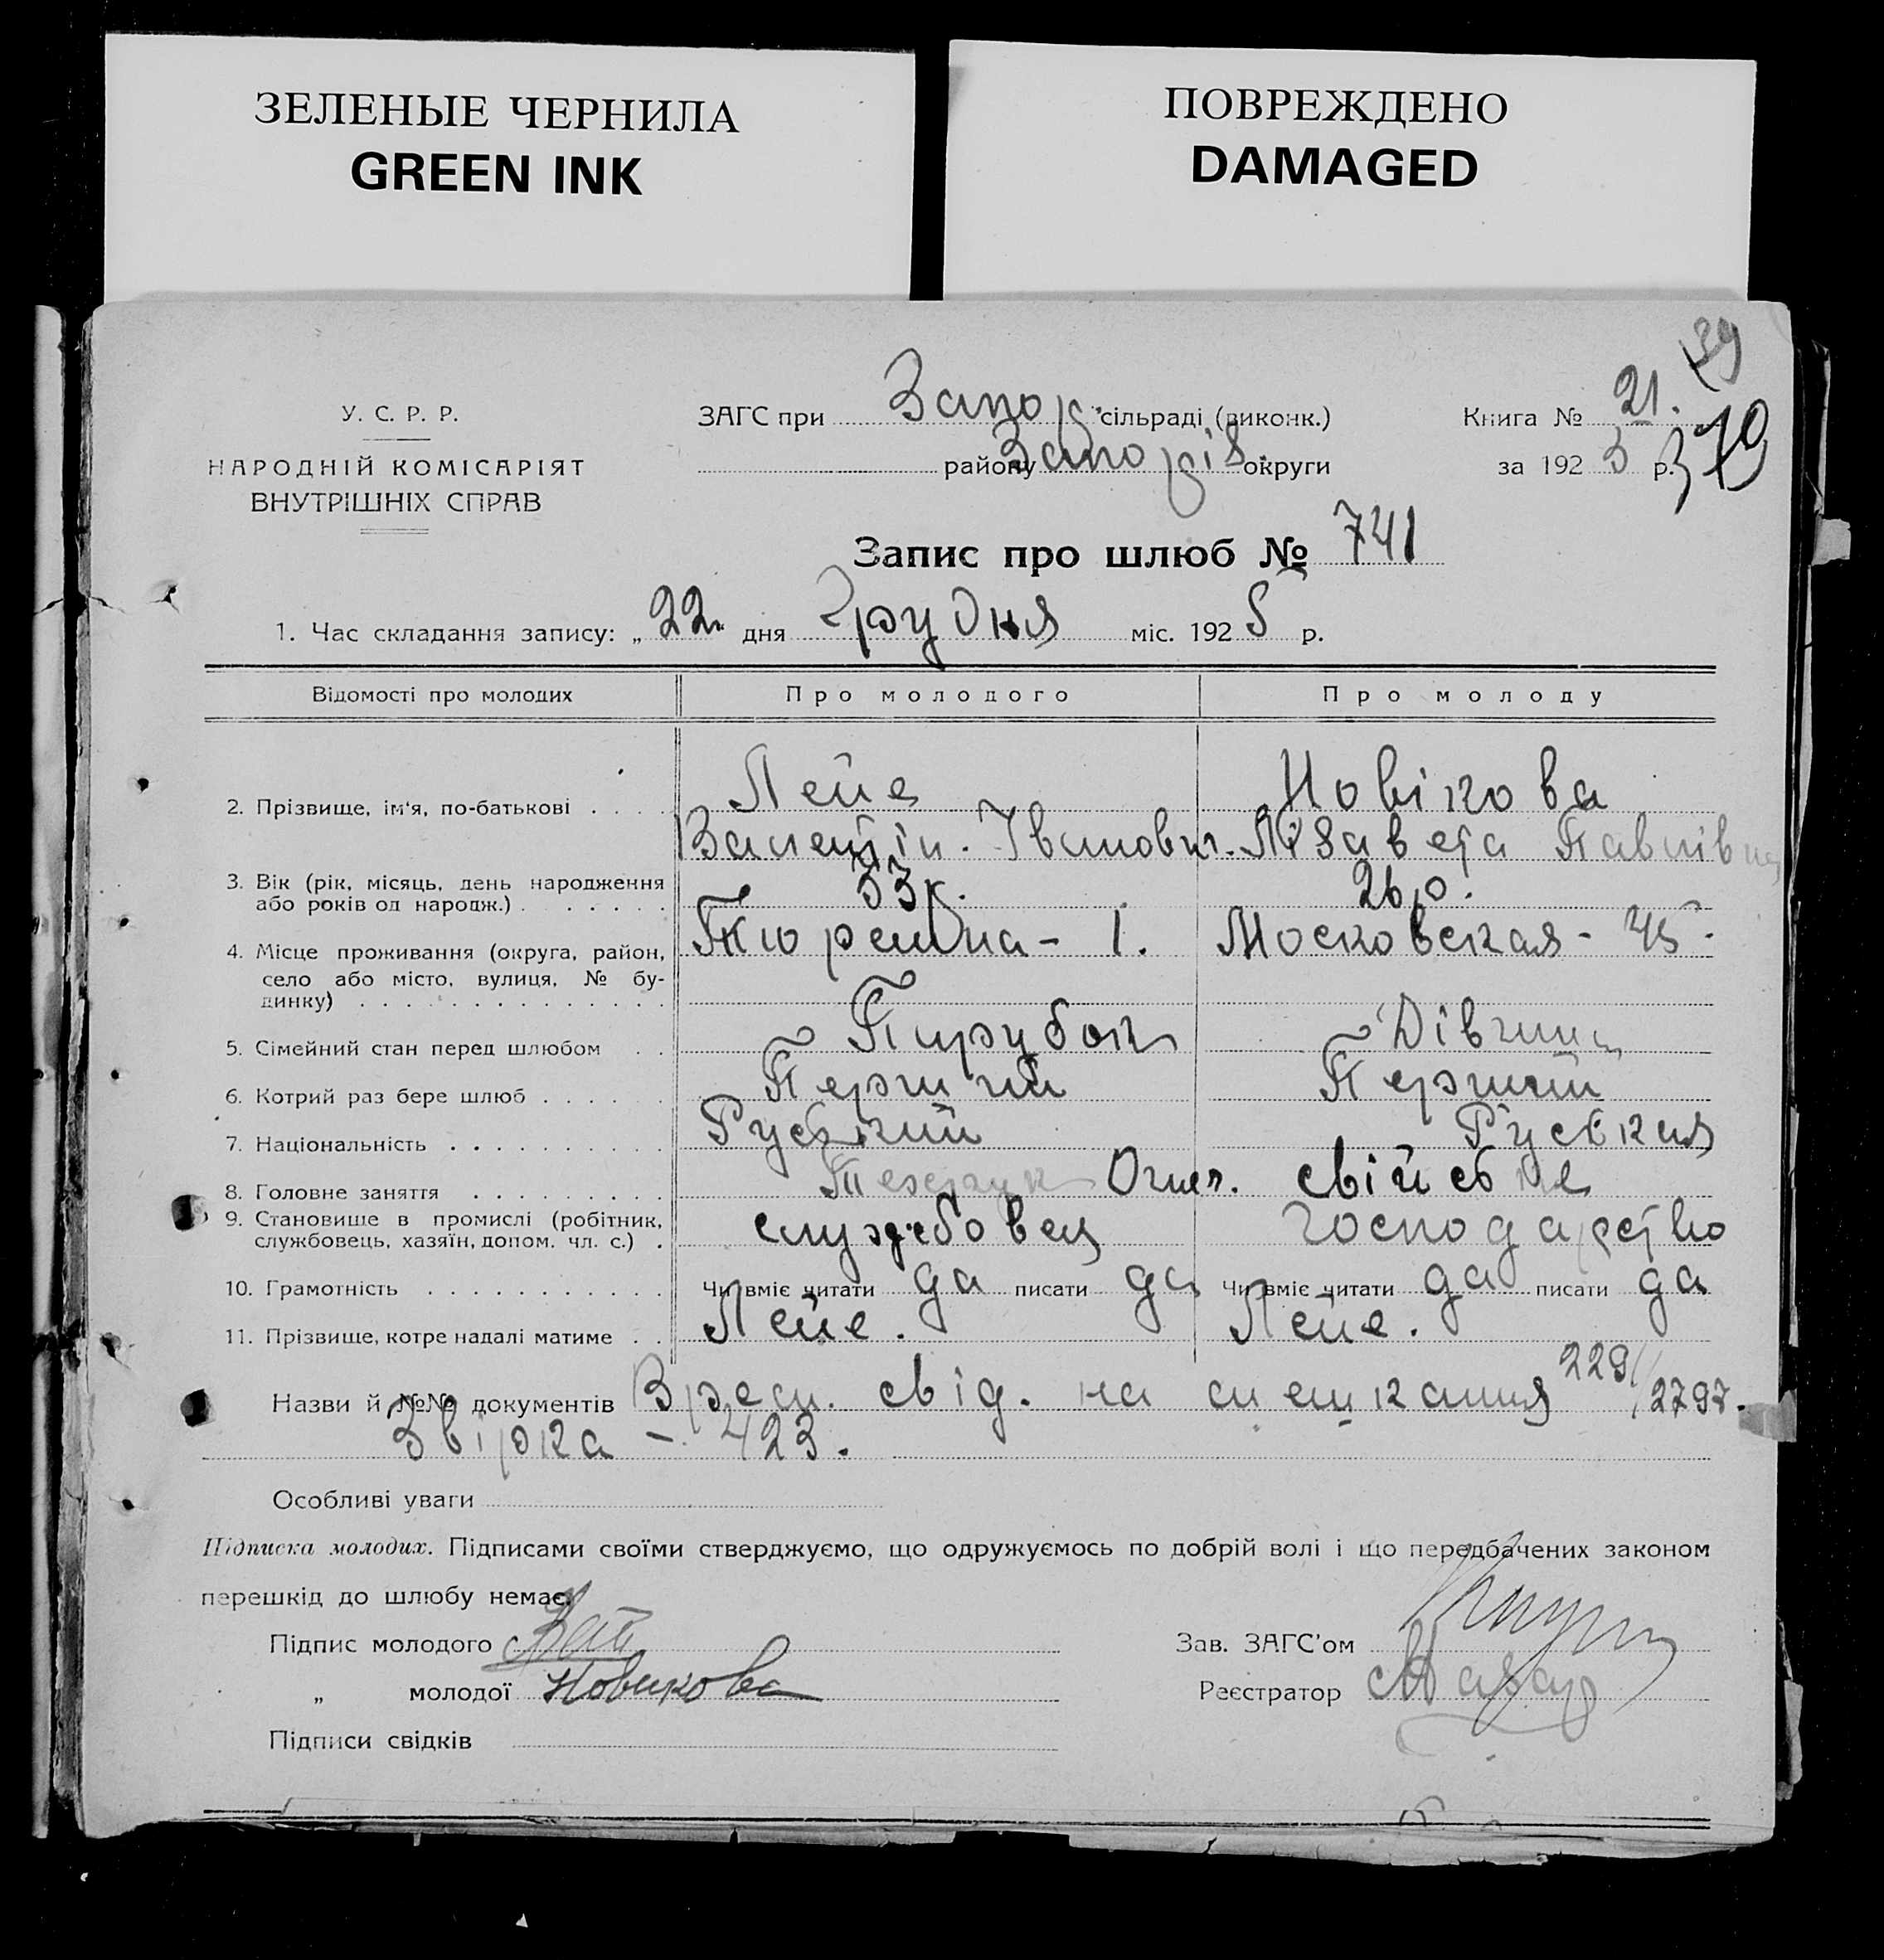 ЗЕЛЕНЫЕ ЧЕРНИЛА
GREEN INK
ПОВРЕЖДЕНО
DAMAGED
39
379
У. С. Р. Р.
НАРОДНІЙ КОМІСАРІЯТ
ВНУТРІШНІХ СПРАВ
ЗАГС при Запор. сільраді (виконк.)
району Запоріз. округи
Книга № 21.
за 192 5 р.
Запис про шлюб № 741
1. Час складання запису: „ 22 " дня Грудня міс. 192 5 р.
Відомості про молодих Про молодого Про молоду
2. Прізвище, ім'я, по-батькові Лейе Новікова
Валентін Іванович. Лізавета Павлівна
3. Вік (рік, місяць, день народження або років од народж.) 33 р. 26 р.
4. Місце проживання (округа, район, село або місто, вулиця, № будинку) Тюремна - 1. Московская - 45.
5. Сімейний стан перед шлюбом Парубок Дівчина
6. Котрий раз бере шлюб Перший Перший
7. Національність Руський Руская
8. Головне заняття свійське
9. Становище в промислі (робітник, службовець, хазяїн, допом. чл. с.) службовец господарство
10. Грамотність Чи вміє читати да писати да Чи вміє читати да писати да
11. Прізвище, котре надалі матиме Лейе. Лейе.
Назви й №№ документів свід. на мешкання 229/2797.
Звірка - 423.
Особливі уваги
Підписка молодих. Підписами своїми стверджуємо, що одружуємось по добрій волі і що передбачених законом
перешкід до шлюбу немає.
Підпис молодого
Зав. ЗАГС'ом
„ молодої Новикова
Реєстратор
Підписи свідків